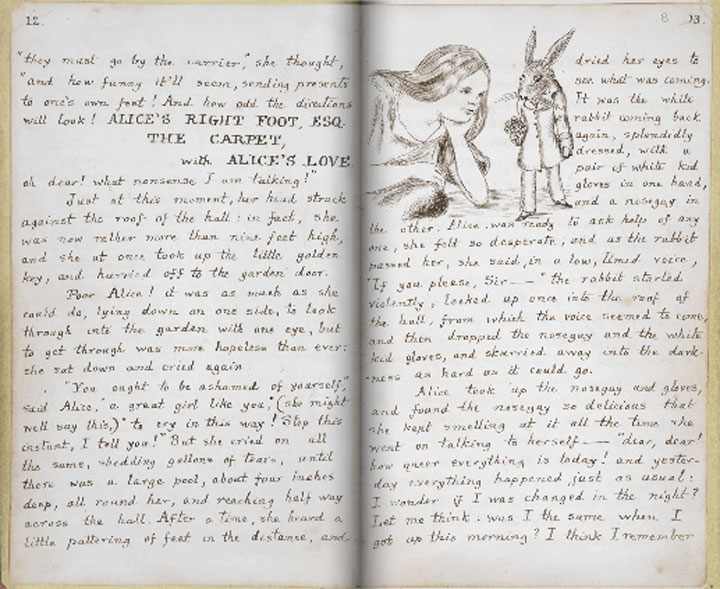 12.
"they must go by the carrier," she thought,
"and how funny it'll seem, sending presents
to one's own feet! And how odd the directions
will look! ALICE'S RIGHT FOOT, ESQ.
THE CARPET,
with ALICE'S LOVE
oh dear! what nonsense I am talking!"
Just at this moment, her head struck
against the roof of the hall: in fact, she
was now rather more than nine feet high,
and she at once took up the little golden
key, and hurried off to the garden door.
Poor Alice! it was as much as she
could do, lying down on one side, to look
through into the garden with one eye, but
to get through was more hopeless than ever:
she sat down and cried again.
"You ought to be ashamed of yourself,"
said Alice, "a great girl like you," (she might
well say this,) "to cry in this way! Stop this
instant, I tell you!" But she cried on all
the same, shedding gallons of tears, until
there was a large pool, about four inches
deep, all round her, and reaching half way
across the hall. After a time, she heard a
little pattering of feet in the distance, and
8 13.
dried her eyes to
see what was coming.
It was the white
rabbit coming back
again, splendidly
dressed, with a
pair of white kid
gloves in one hand,
and a nosegay in
the other. Alice was ready to ask help of any
one, she felt so desperate, and as the rabbit
passed her, she said, in a low, timid voice,
"If you please, Sir——" the rabbit started
violently, looked up once into the roof of
the hall, from which the voice seemed to come,
and then dropped the nosegay and the white
kid gloves, and skurried away into the dark-
ness as hard as it could go.
Alice took up the nosegay and gloves,
and found the nosegay so delicious that
she kept smelling at it all the time she
went on talking to herself—— "dear, dear!
how queer everything is today! and yester-
day everything happened just as usual:
I wonder if I was changed in the night?
Let me think: was I the same when I
got up this morning? I think I remember